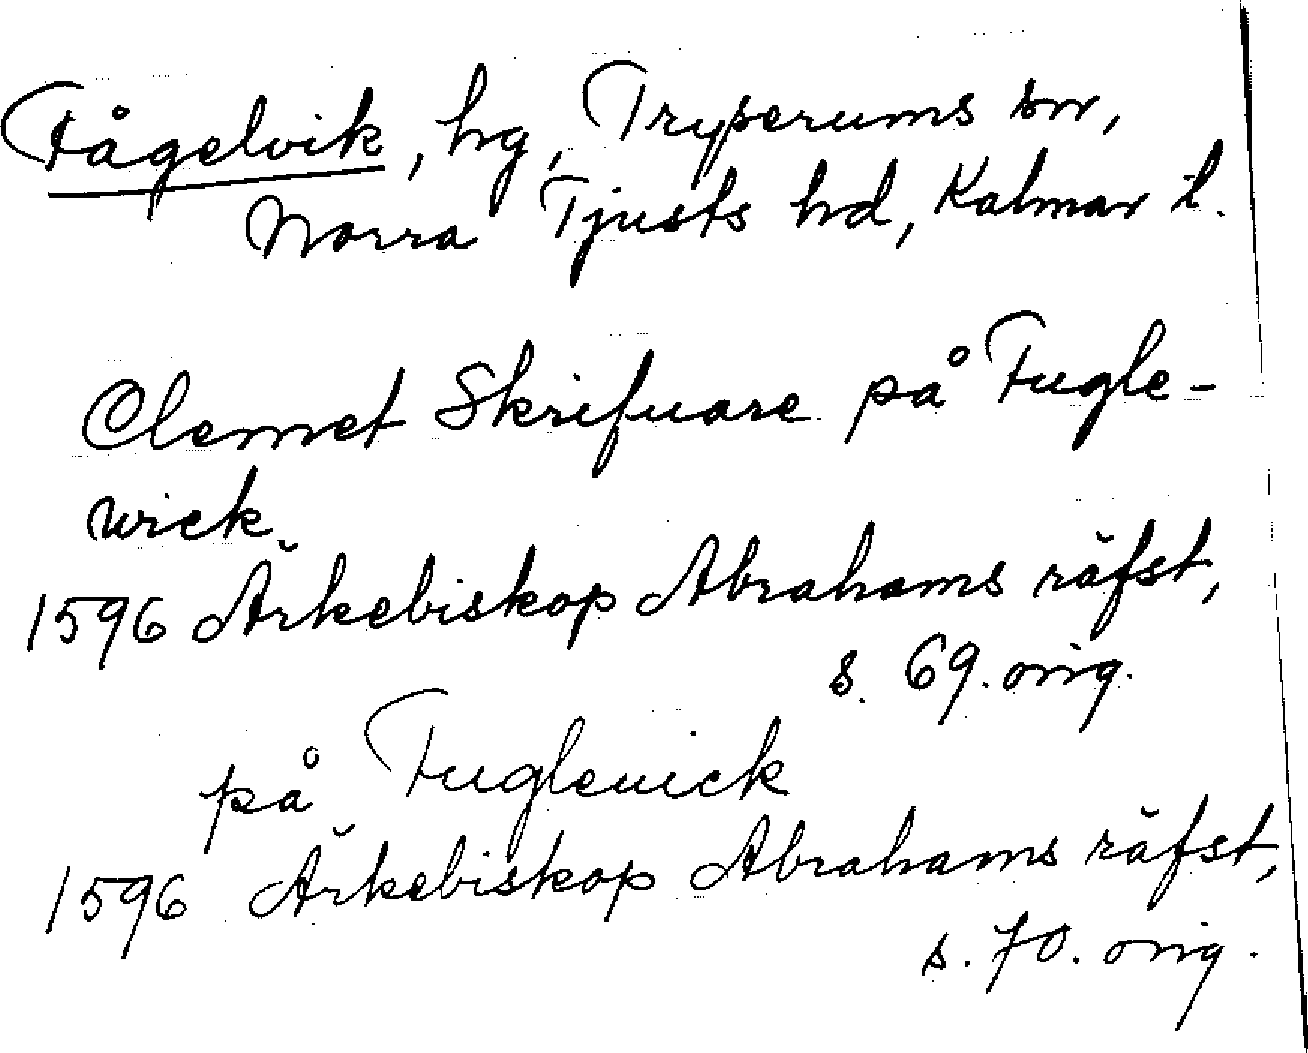 Fågelvik, hg, Tryserums sn,
Norra Tjusts hd, Kalmar l.
Clemet Skrifuare på Fugle-
wick.
1596 Ärkebiskop Abrahams räfst,
s. 69. orig.
på Fugleuick
1596 Ärkebiskop Abrahams räfst,
s. 70. orig.